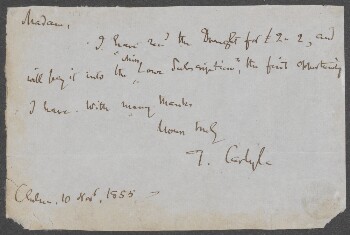 Madam,
I have recd the Draught for £2-2, and
will pay it into the "Miss Lowe Subscription", the first opportunity
I have. With many thanks
Yours truly
T. Carlyle
Chelsea, 10 Novr, 1855